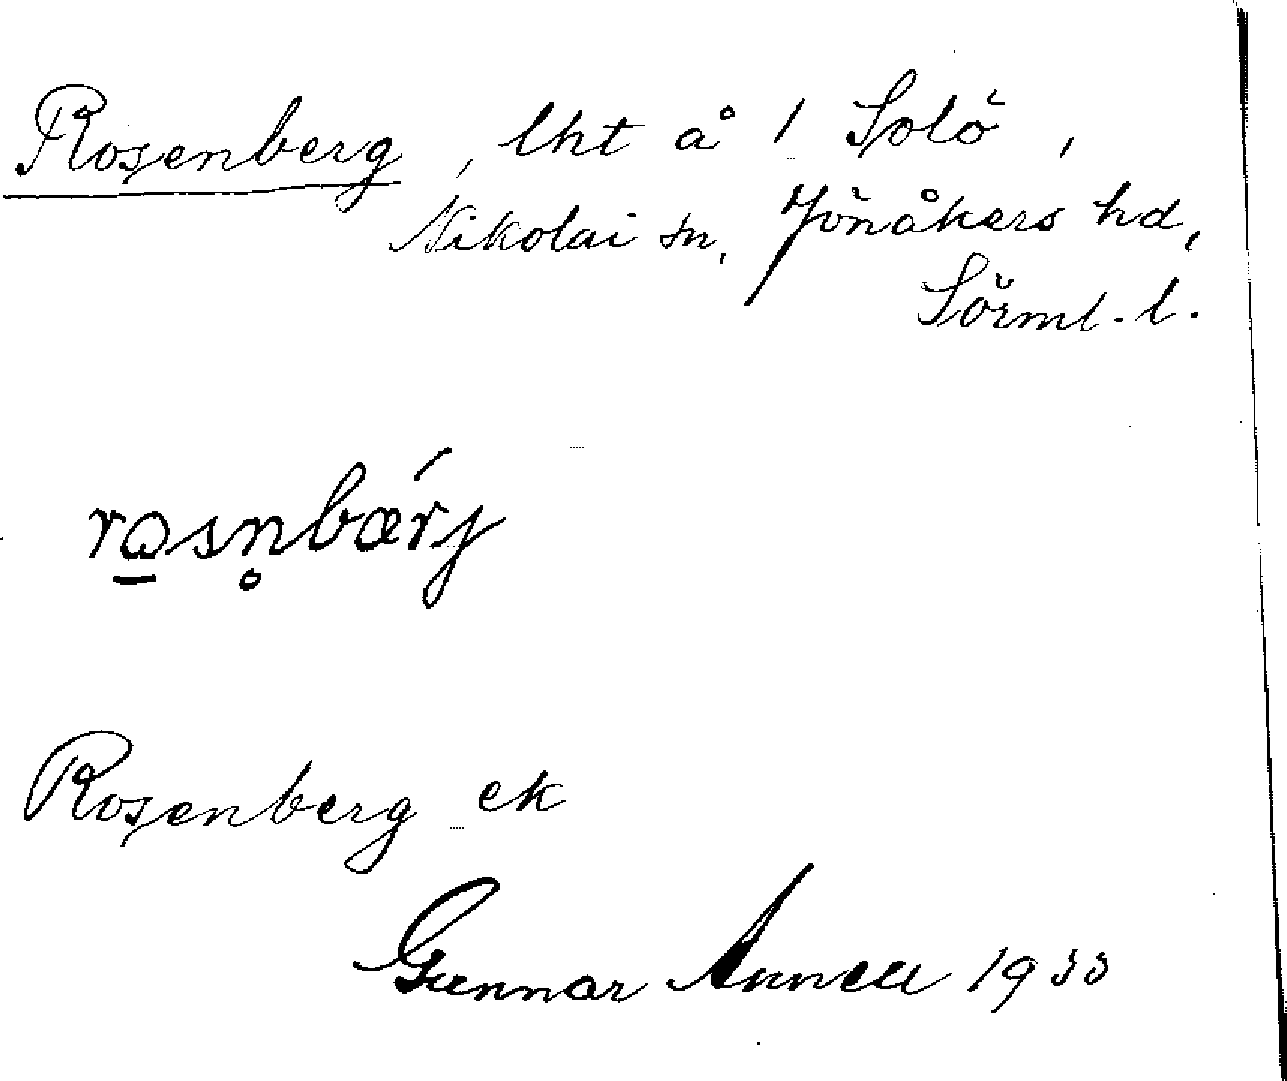 Rosenberg, lht å 1 Solö,
Nikolai sn, Jönåkers hd,
Sörml. l.
ro̲sn̥bærj́
Rosenberg ek
Gunnar Annell 1933